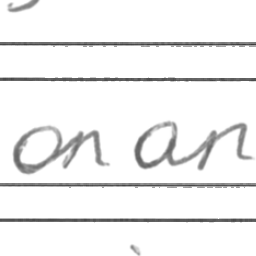 on an